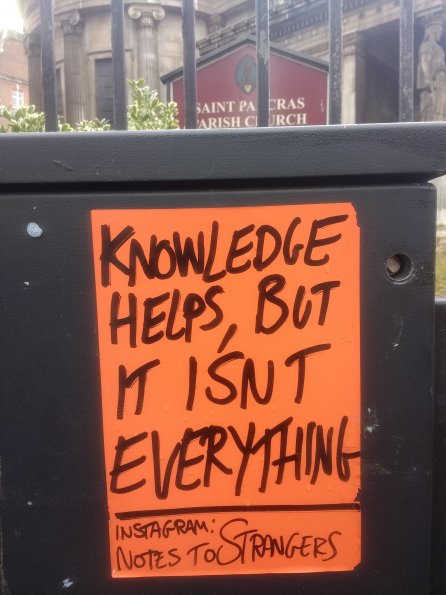 SAINT PANCRAS
PARISH CHURCH
KNOWLEDGE
HELPS, BUT
IT ISN'T
EVERYTHING
INSTAGRAM:
NOTES TO STRANGERS